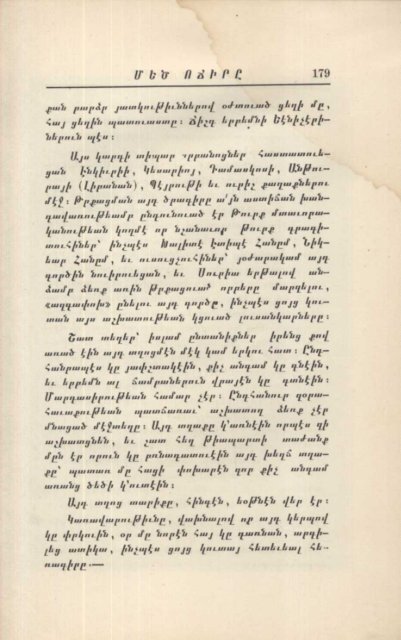 ՄԵԾ ՈՃԻՐԸ 179
քան բարձր յատկութիւններով օժտուած ցեղի մը,
հայ ցեղին պատուաստը։ Ճիշդ երբեմնի Ենիչէրի-
ներուն պէս։
Այս կարգի տիպար որբանոցներ հաստատուե-
ցան Էնկիւրիի, Կեսարիոյ, Դամասկոսի, Անթու-
րայի (Լիբանան), Պէյրութի եւ ուրիշ քաղաքներու
մէջ։ Թրքացման այդ ծրագիրը ա՛յն աստիճան խան-
դավառութեամբ ընդունուած էր Թուրք մտաւորա-
կանութեան կողմէ որ նշանաւոր Թուրք գրագի-
տուհիներ՝ ինչպէս Խալիտէ Էտիպէ Հանըմ, Նիկ-
եար Հանըմ, եւ ուսուցչուհիներ՝ յօժարակամ այդ
գործին նուիրուեցան, եւ Սուրիա երթալով ան-
ձամբ ձեռք առին թրքացուած որբերը մարզելու,
հազզափոխ ընելու այդ գործը, ինչպէս ցոյց կու-
տան այս աշխատութեան կցուած լուսանկարները։
Շատ տեղեր՝ իսլամ ընտանիքներ իրենց քով
առած էին այդ տղոցմէն մէկ կամ երկու հատ։ Ընդ-
հանրապէս կը յափշտակէին, քիչ անգամ կը գնէին,
եւ երբեմն ալ ճամբաներուն վրայէն կը գտնէին։
Մարդասիրութեան համար չէր։ Ընդհանուր զօրա-
հաւաքութեան պատճառաւ՝ աշխատող ձեռք չէր
մնացած մէջտեղը։ Այդ տղաքը կ՚առնէին որպէս զի
աշխատցնեն, եւ շատ հեղ թիապարտի տաժանք
մըն էր որուն կը բռնադատուէին այդ խեղճ տղա-
քը՝ պատառ մը հացի փոխարէն զոր քիչ անգամ
առանց ծեծի կ՚ուտէին։
Այդ տղոց տարիքը, հինգէն, եօթնէն վեր էր։
Կառավարութիւնը, վախնալով որ այդ կերպով
կը փրկուին, օր մը նորէն հայ կը դառնան, արգի-
լեց ատիկա, ինչպէս ցոյց կուտայ հետեւեալ հե-
ռագիրը.—